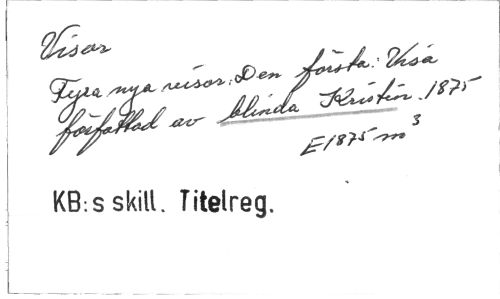 Visor
Fyra nya visor: Den första: Visa
författad av blinda Kristin. 1875
E1875 m³
KB:s skill. Titelreg.